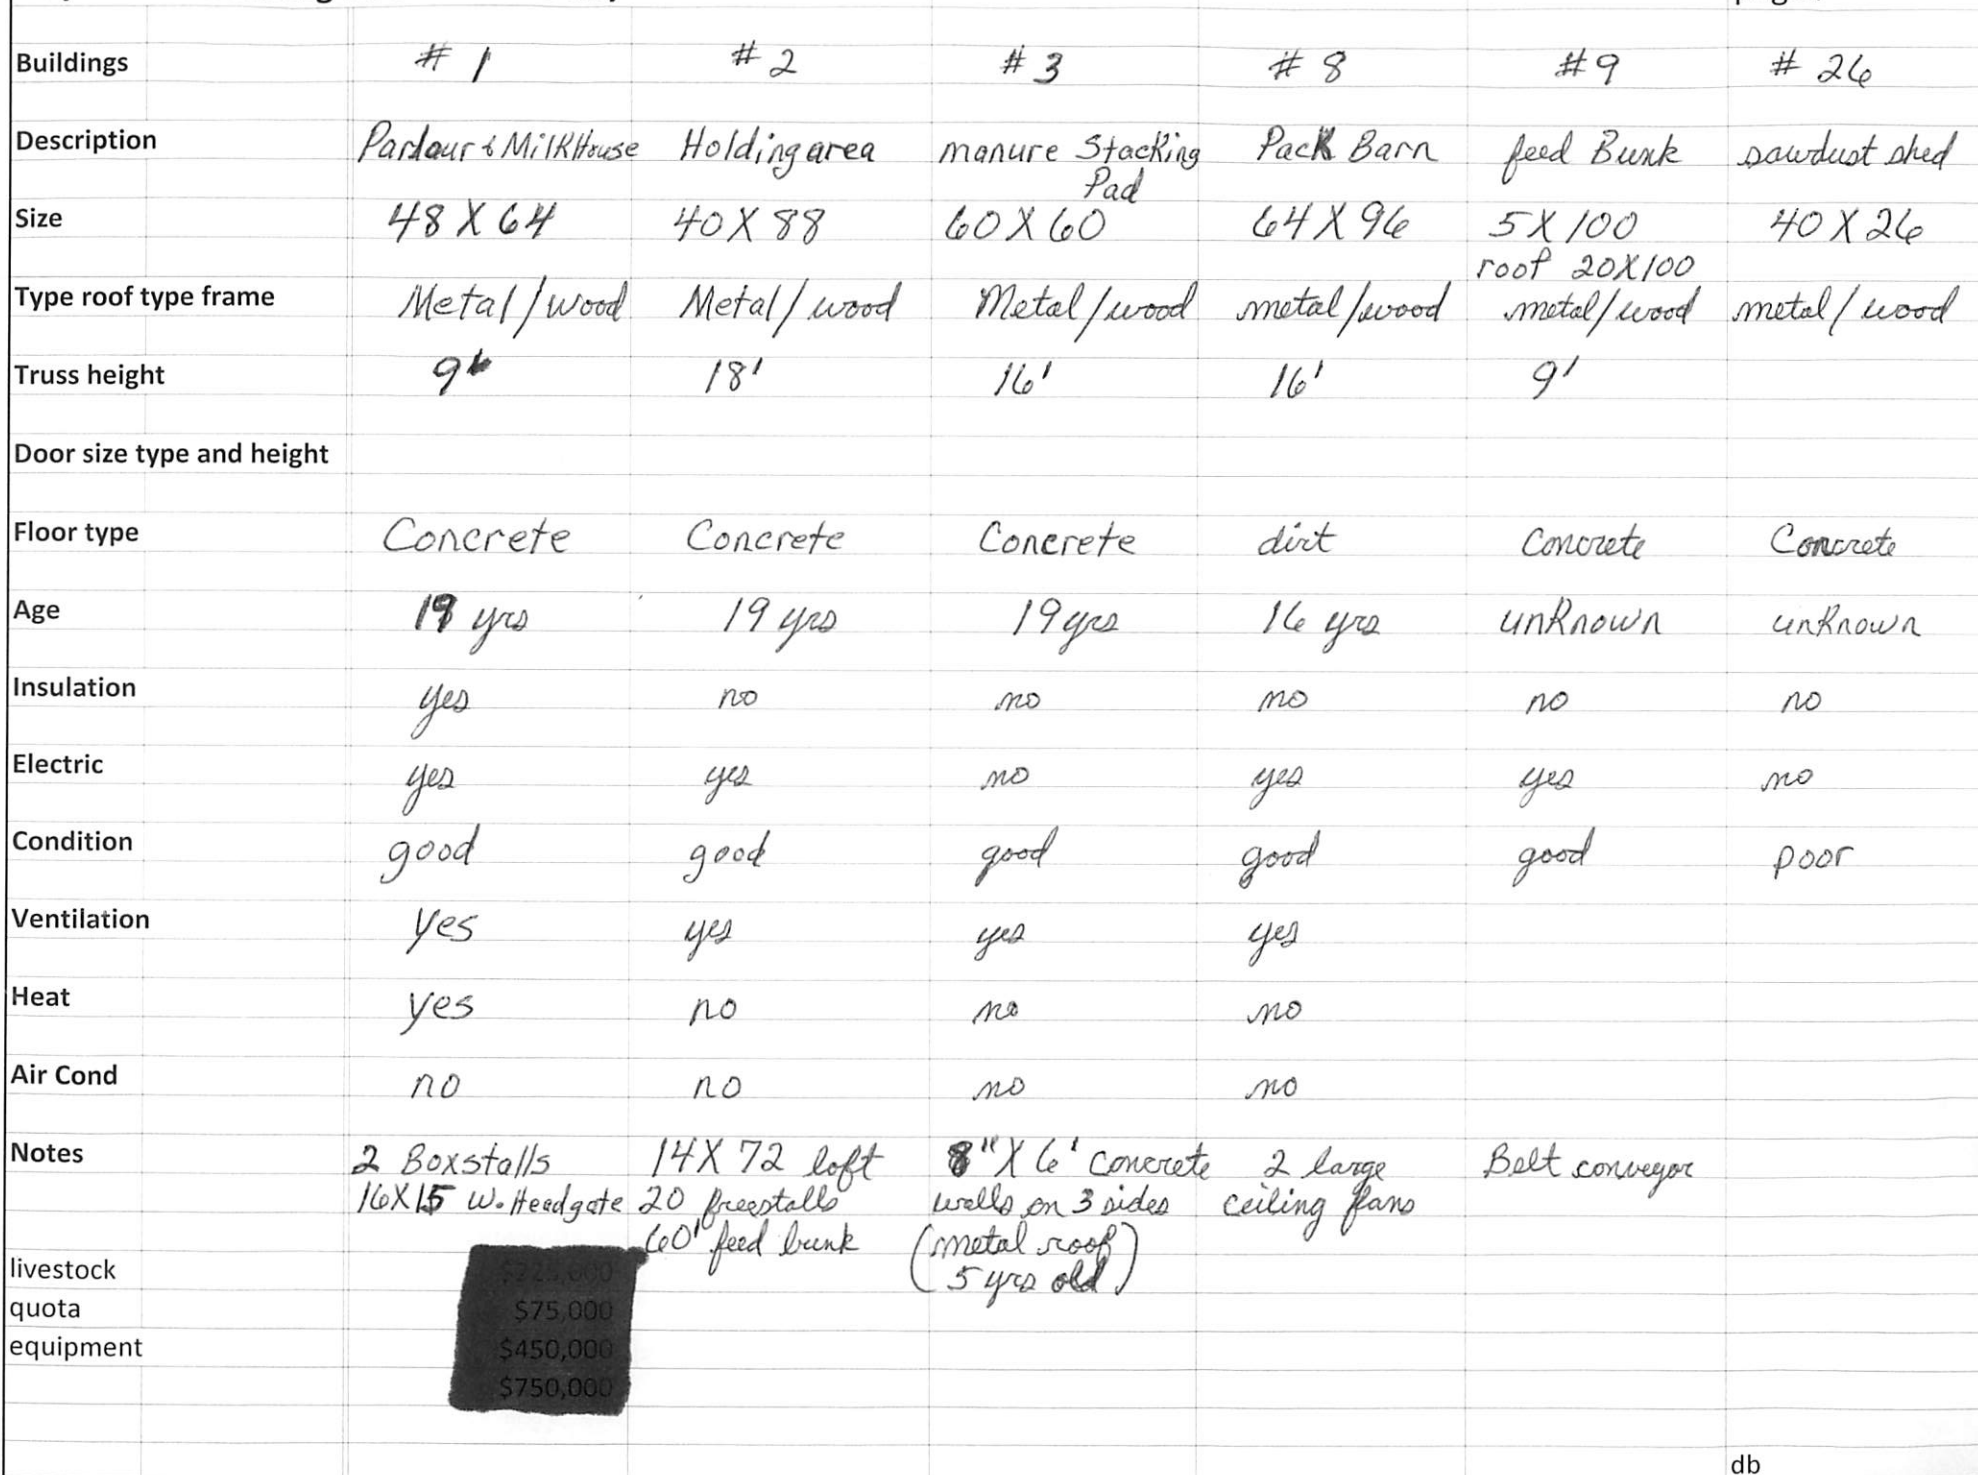 Buildings # 1 # 2 # 3 # 8 #9 # 26
Description Parlour & MilkHouse Holding area manure Stacking Pad Pack Barn feed Bunk sawdust shed
Size 48 X 64 40 X 88 60 X 60 64 X 96 5 X 100 40 X 26
roof 20X100
Type roof type frame Metal/wood Metal/wood Metal/wood metal/wood metal/wood metal/wood
Truss height 9' 18' 16' 16' 9'
Door size type and height
Floor type Concrete Concrete Concrete dirt Concrete Concrete
Age 19 yrs 19 yrs 19 yrs 16 yrs unknown unknown
Insulation yes no no no no no
Electric yes yes no yes yes no
Condition good good good good good poor
Ventilation yes yes yes yes
Heat yes no no no
Air Cond no no no no
Notes 2 Boxstalls 14X72 loft 8" X 6' concrete 2 large Belt conveyor
16X15 w. Headgate 20 freestalls walls on 3 sides ceiling fans
60' feed bunk (metal roof)
livestock (5 yrs old)
quota $75,000
equipment $450,000
$750,000
db